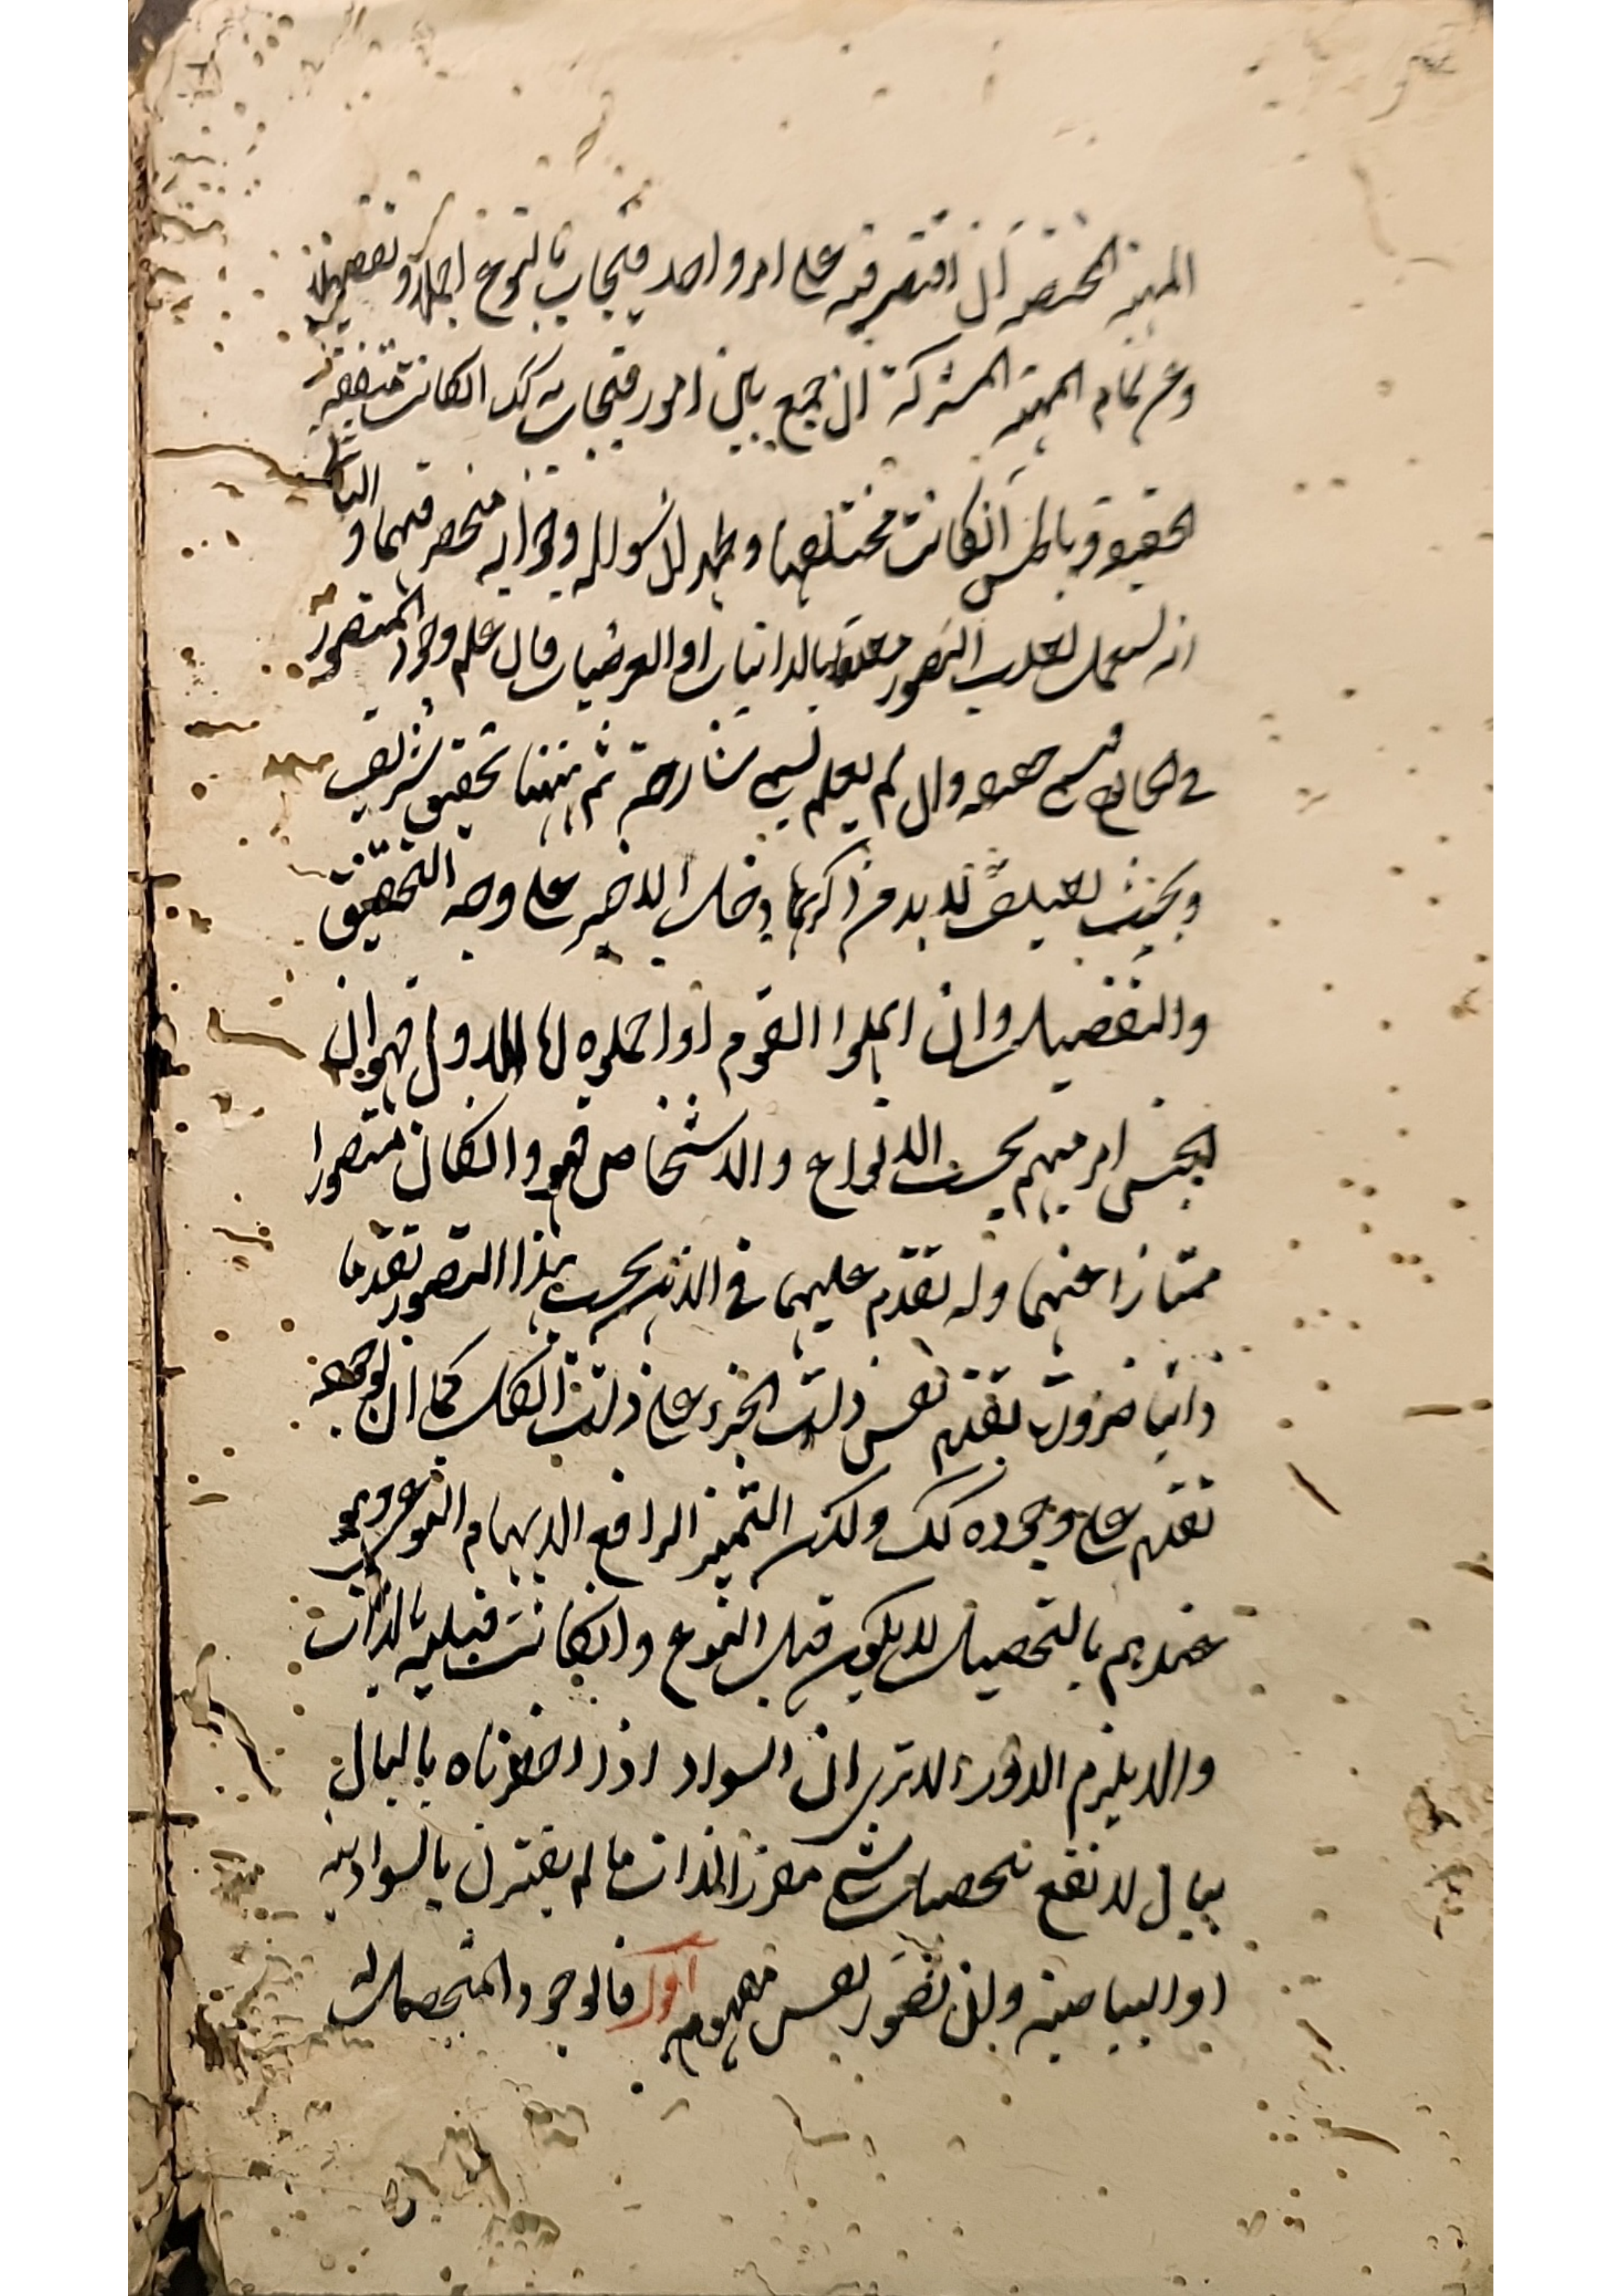 المهية المختصة ان اقتصر فيه على امر واحد فيجاب بالنوع اجمالا وتفصيلا
وعن تمام المهية المشتركة ان جمع بين امور فيجاب به كك انكانت متفقة
الحقيقة وبالجنس انكانت مختلفها وظهر ان السوال وجوابه منحصر فيهما و
انه لتعلب التصور متعلقا بالذاتيات او العرضيات فان علم وجود المتصور
في الخارج فبحسب حقيقته وان لم يعلم يسمى شارحة ثم ههنا تحقيق شريف
وبحث لطيف لا بد من ذكرهما وخاصة الاخير على وجه التحقيق
والتفصيل وان اهملوا القوم او اجملوه اما الاول فهو ان
الجنس امر مبهم بحسب الانواع والاشخاص فهو وانكان متصورا
ممتازا عنهما وله تقدم عليهما في الذهن بحسب هذا التصور تقدما
ذاتيا ضرورة تقدم نفس ذات الجزء على ذات الكل كما ان لوجوده
تقدم على وجوده كك ولكن التميز الرافع الابهام النوعي وهو
عندهم بالتحصيل لا يكون قبل النوع وانكانت قبلية بالذات
والا يلزم الدور الا ترى ان السواد اذا اخطرناه بالبال
ببال لا نقع تحصيل شئ مقرر الذات ما لم يقترن بالسوادية
او البياضية ولئن تصور نفس مفهومه اول فالوجود والتحصل له